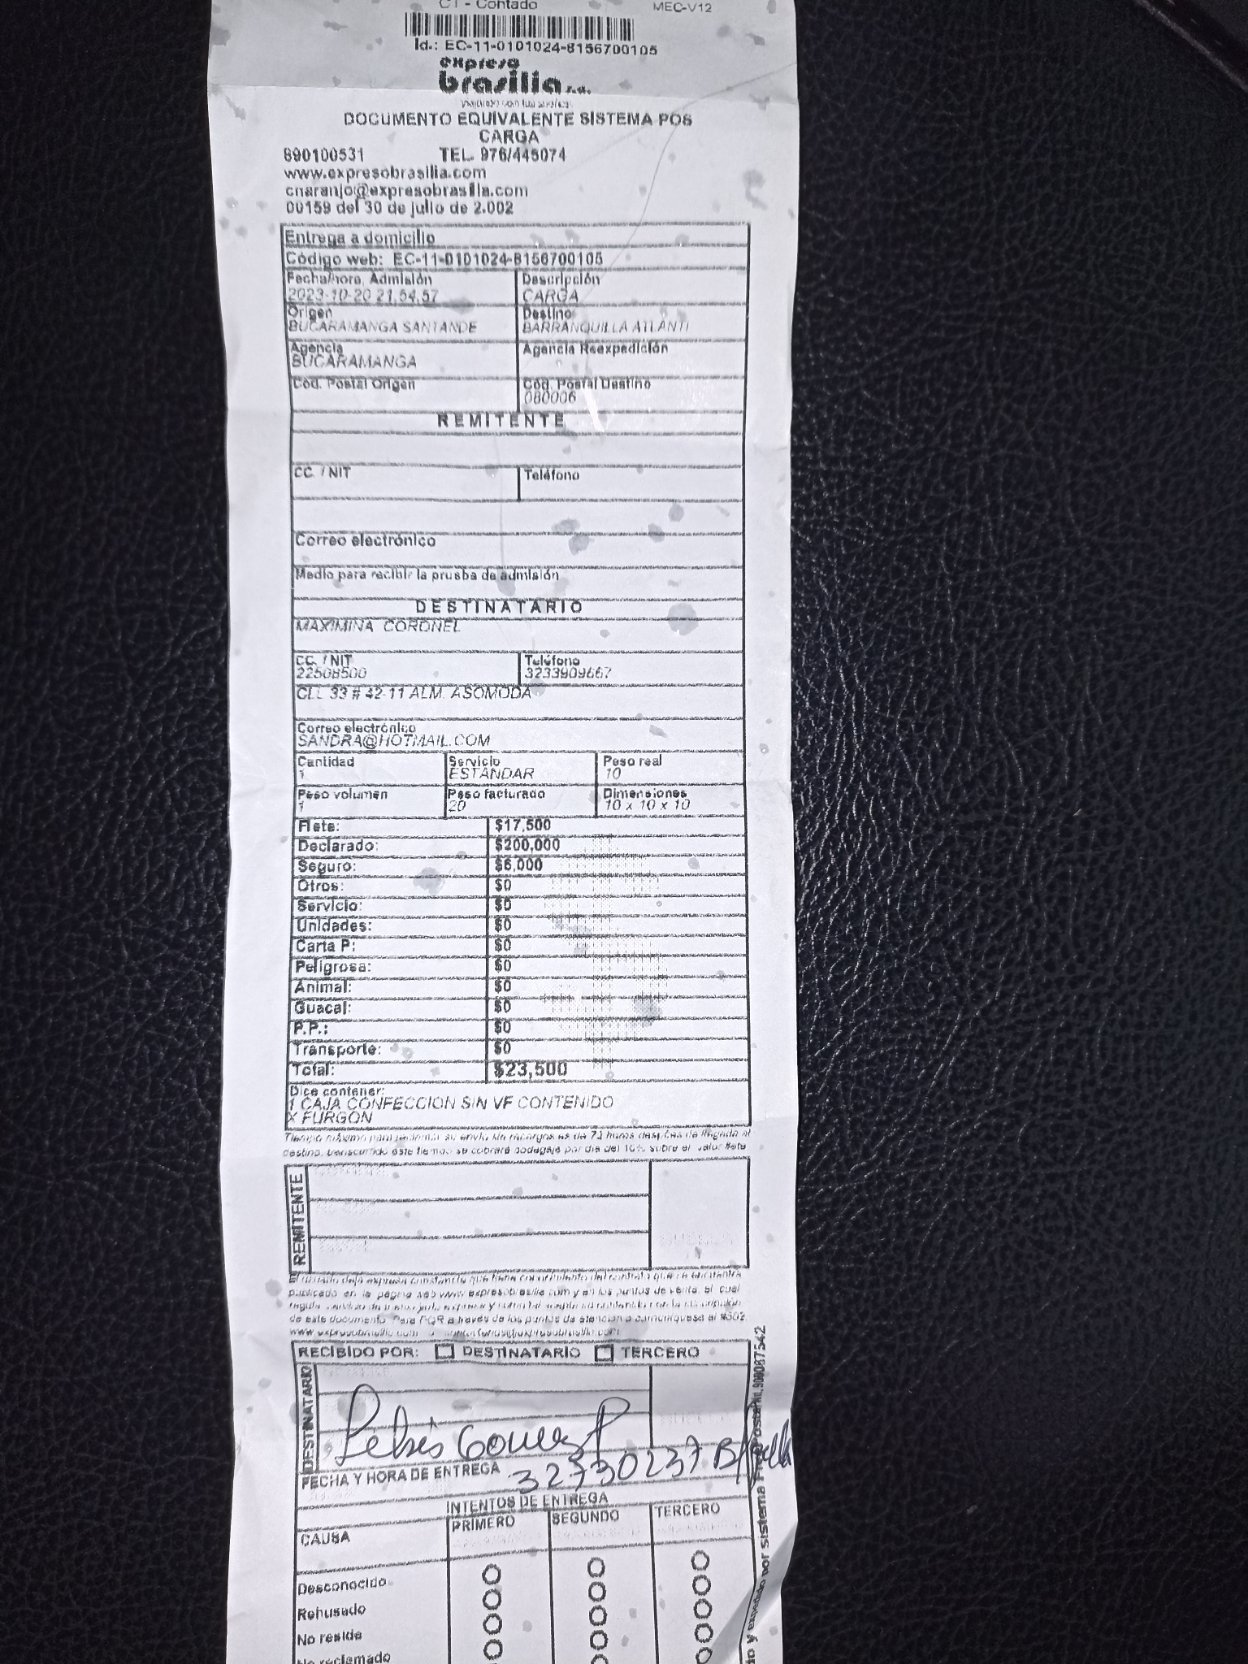 CT - Contado MEC-V12
Id.: EC-11-0101024-8156700105
expreso
brasilia s.a.
DOCUMENTO EQUIVALENTE SISTEMA POS
CARGA
890100531 TEL. 976/445074
www.expresobrasilia.com
cnaranjo@expresobrasilia.com
00159 del 30 de julio de 2.002
Entrega a domicilio
Código web: EC-11-0101024-8156700105
Fecha/hora, Admisión Descripción
2023-10-20 21.54.57 CARGA
Origen Destino
BUCARAMANGA SANTANDE BARRANQUILLA ATLANTI
Agencia Agencia Reexpedición
BUCARAMANGA
Cód. Postal Origen Cód. Postal Destino
080006
REMITENTE
CC. / NIT Teléfono
Correo electrónico
Medio para recibir la prueba de admisión
DESTINATARIO
MAXIMINA CORONEL
CC. / NIT Teléfono
22508500 3233909667
CLL 33 # 42-11 ALM. ASOMODA
Correo electrónico
SANDRA@HOTMAIL.COM
Cantidad Servicio Peso real
1 ESTANDAR 10
Peso volumen Peso facturado Dimensiones
1 20 10 x 10 x 10
Flete: $17,500
Declarado: $200,000
Seguro: $6,000
Otros: $0
Servicio: $0
Unidades: $0
Carta P: $0
Peligrosa: $0
Animal: $0
Guacal: $0
P.P.: $0
Transporte: $0
Total: $23,500
Dice contener:
1 CAJA CONFECCION SIN VF CONTENIDO
X FURGON
Tiempo máximo para reclamar su envío sin recargos es de 72 horas después de llegada al
destino, transcurrido este tiempo se cobrará bodegaje por día del 10% sobre el valor flete
REMITENTE
El usuario deja expresa constancia que tiene conocimiento del contrato que se encuentra
publicado en la página web www.expresobrasilia.com y en los puntos de venta, el cual
de este documento. Para PQR a través de los puntos de atención o comuníquese al
www.expresobrasilia.com
RECIBIDO POR: DESTINATARIO TERCERO
DESTINATARIO
Gomez P
FECHA Y HORA DE ENTREGA 32730237 B/quilla
INTENTOS DE ENTREGA
CAUSA PRIMERO SEGUNDO TERCERO
Desconocido
Rehusado
No reside
No reclamado
do y expedido por sistema